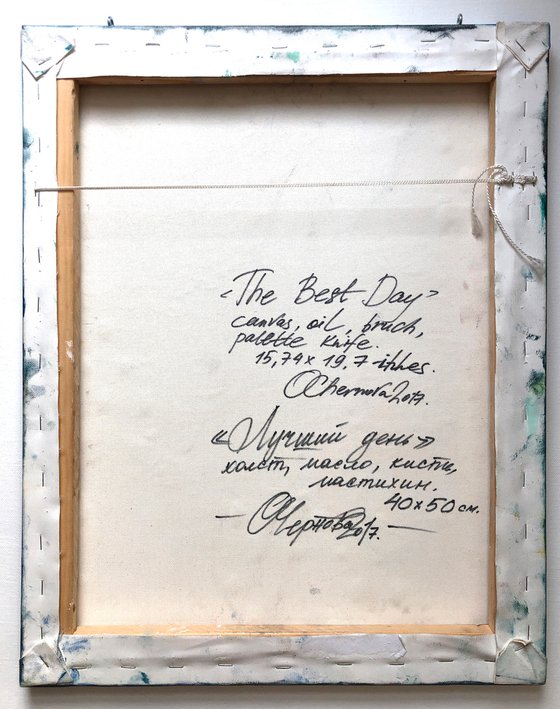 «The Best Day»
canvas, oil, bruch,
palette knife.
15,74 x 19,7 inhes.
OChernova 2017.
«Лучший день»
холст, масло, кисти,
мастихин.
40 x 50 см.
— ОЧернова 2017. —